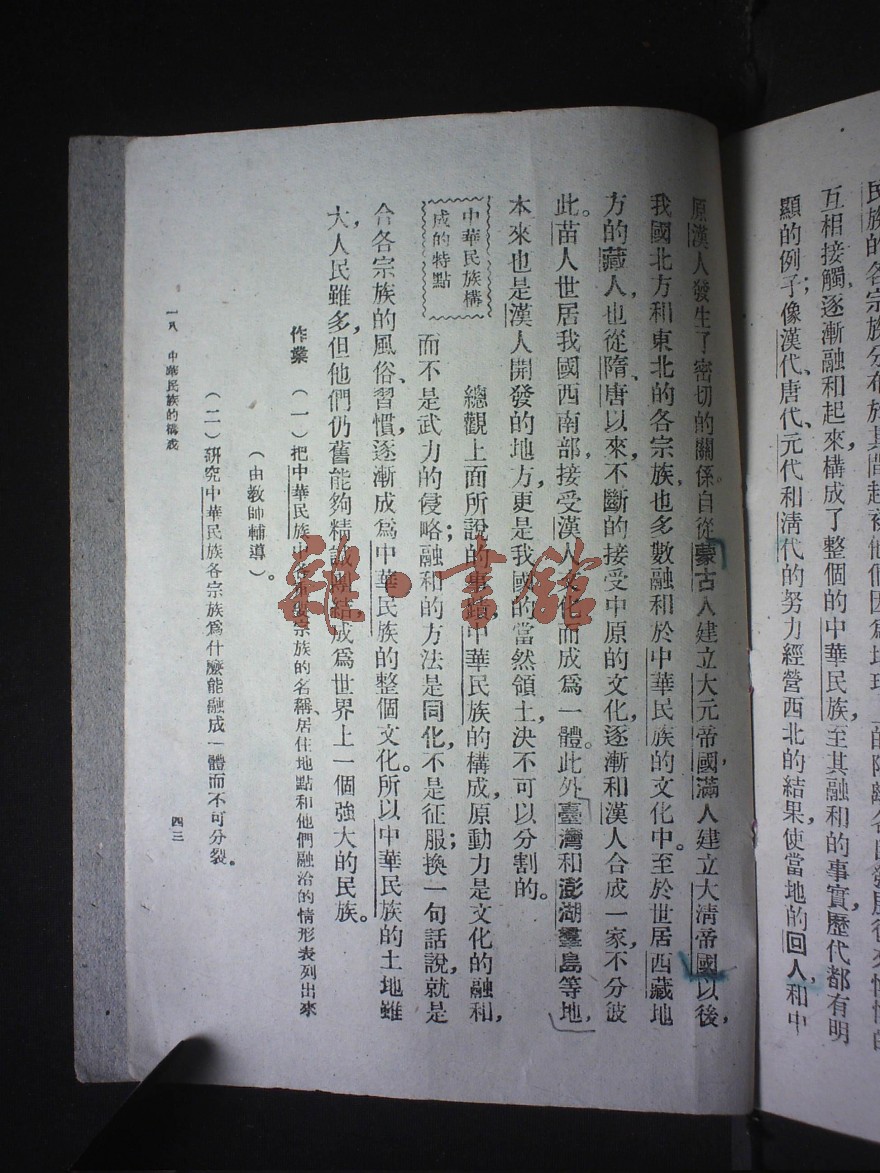 互相接觸，逐漸融和起來，構成了整個的中華民族，至其融和的事實，歷代都有明
顯的例子；像漢代、唐代、元代和清代的努力經營西北的結果，使當地的回人和中
原漢人發生了密切的關係。自從蒙古人建立大元帝國，滿人建立大清帝國以後，
我國北方和東北的各宗族，也多數融和於中華民族的文化中。至於世居西藏地
方的藏人，也從隋、唐以來，不斷的接受中原的文化，逐漸和漢人合成一家，不分彼
此。苗人世居我國西南部，接受漢人文化而成爲一體。此外臺灣和澎湖羣島等地，
本來也是漢人開發的地方，更是我國的當然領土，決不可以分割的。
中華民族構
成的特點
總觀上面所說的事蹟，中華民族的構成，原動力是文化的融和，
而不是武力的侵略；融和的方法是同化，不是征服；換一句話說，就是
合各宗族的風俗、習慣，逐漸成爲中華民族的整個文化。所以中華民族的土地雖
大，人民雖多，但他們仍舊能夠精誠團結，成爲世界上一個強大的民族。
作業 （一）把中華民族宗族的名稱、居住地點和他們融洽的情形表列出來
（由教師輔導）。
（二）研究中華民族各宗族爲什麼能融成一體而不可分裂。
一八 中華民族的構成 四三
雜·書館